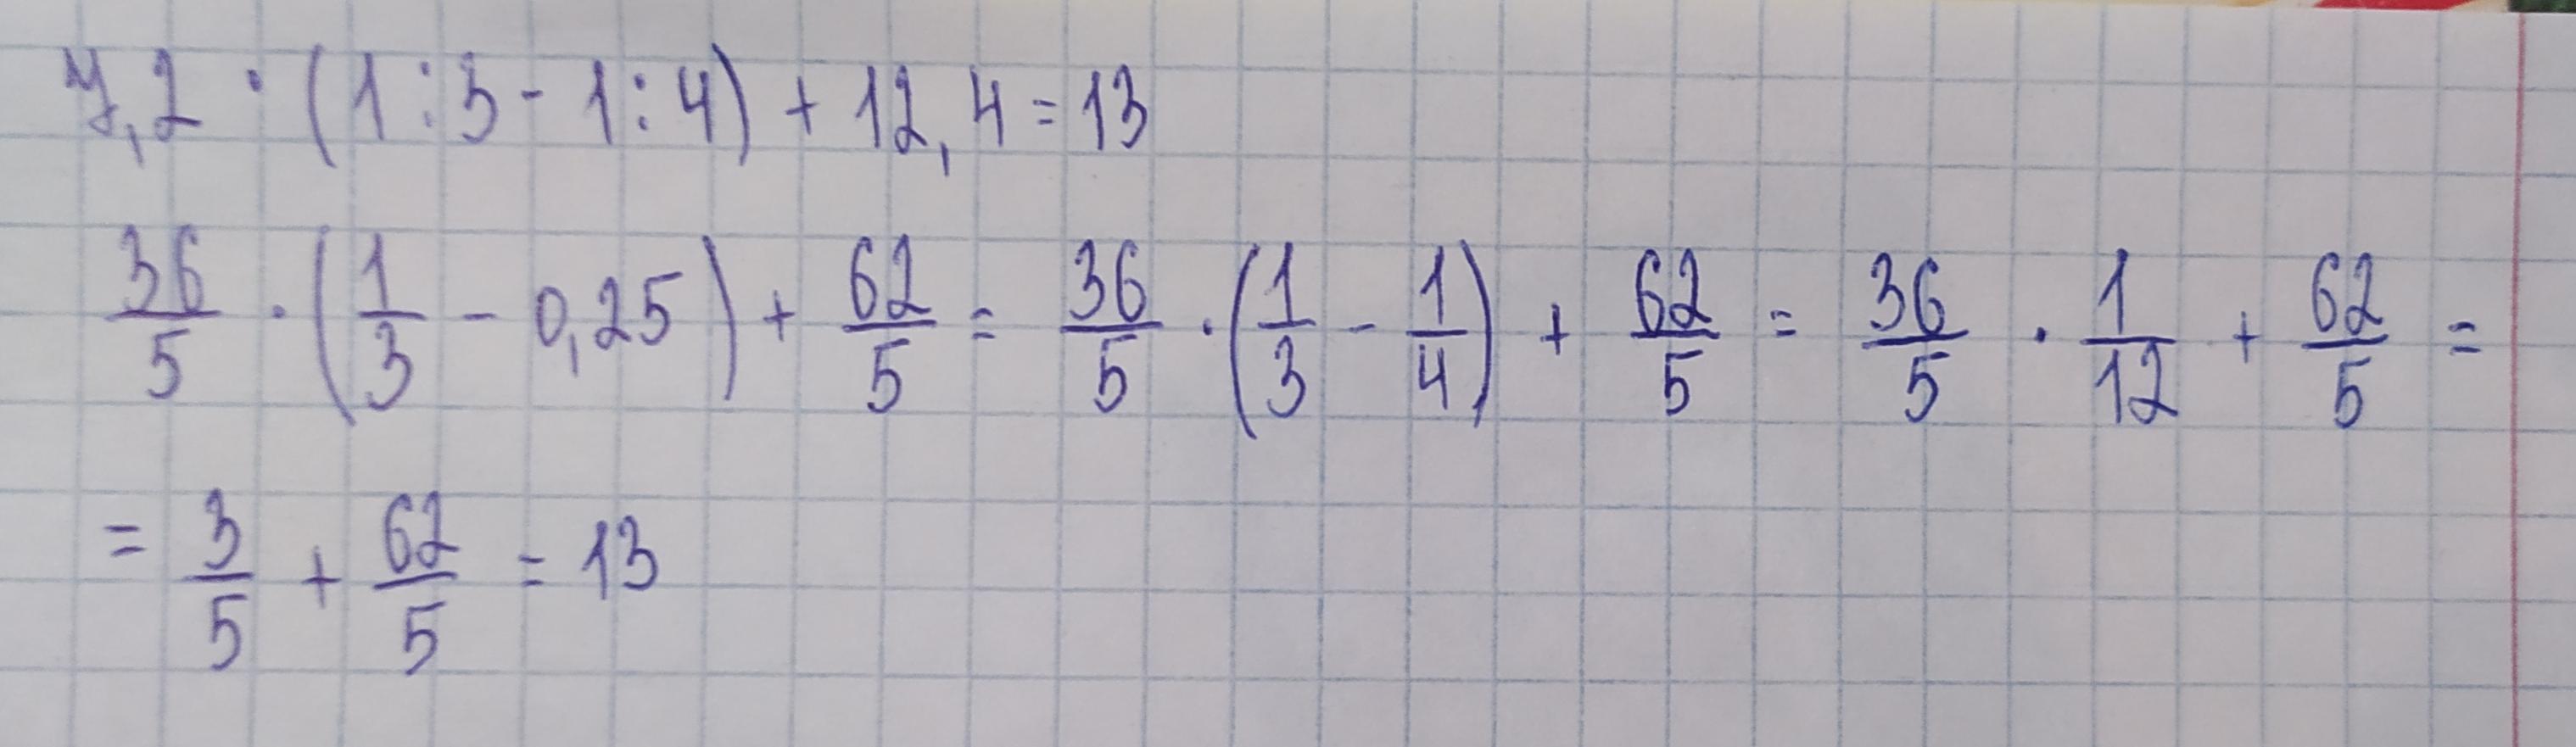 7,2 · (1 : 3 - 1 : 4) + 12,4 = 13
36/5 · (1/3 - 0,25) + 62/5 = 36/5 · (1/3 - 1/4) + 62/5 = 36/5 · 1/12 + 62/5 =
= 3/5 + 62/5 = 13